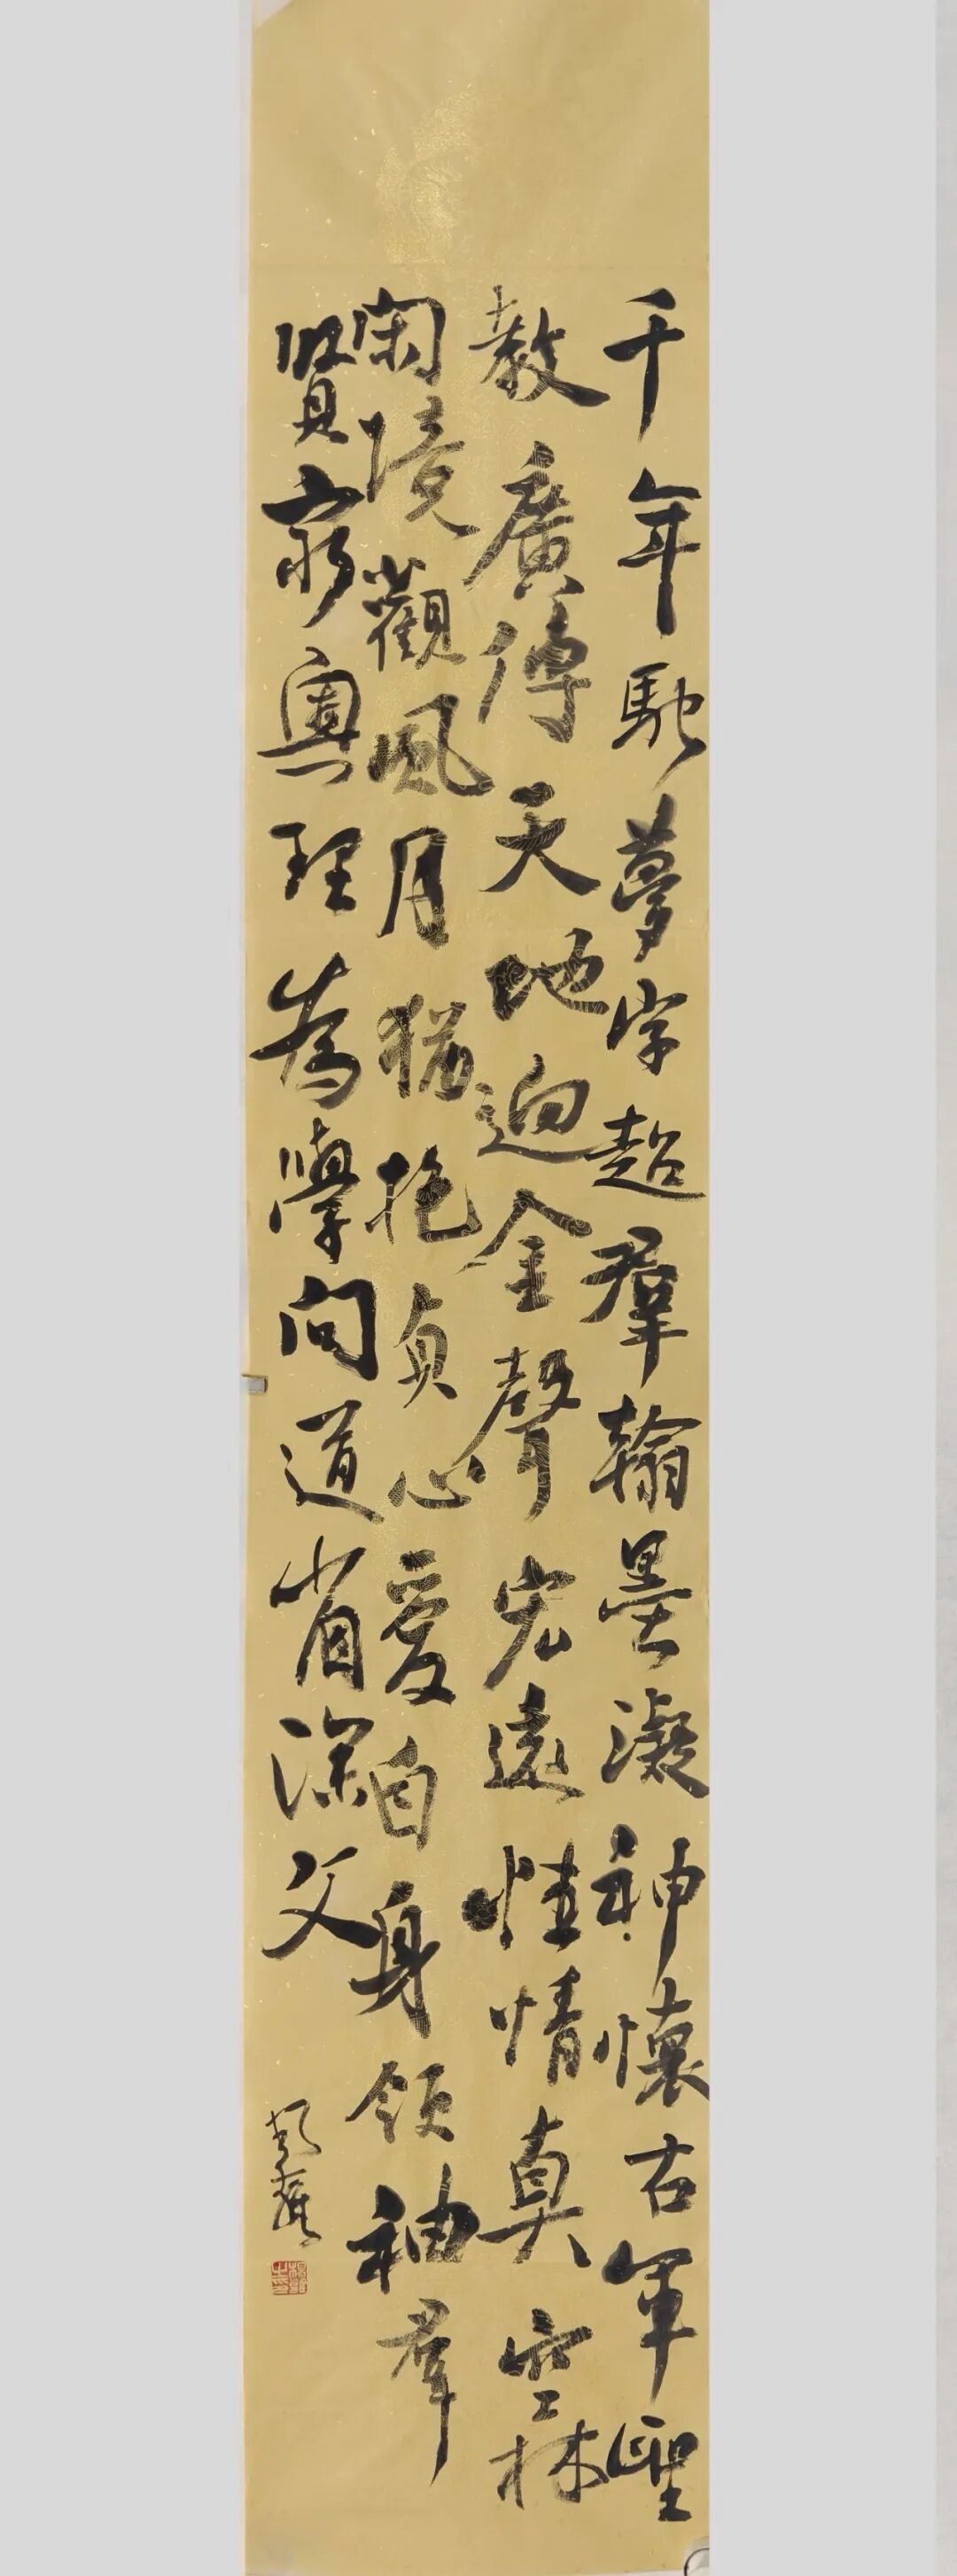 千年馳夢字超羣翰墨凝神懷古軍聖
教廣傳天地迥金聲宏遠性情真空林
閑境觀風月猶抱貞心愛自身領袖羣
賢窮奧理為學問道省深文